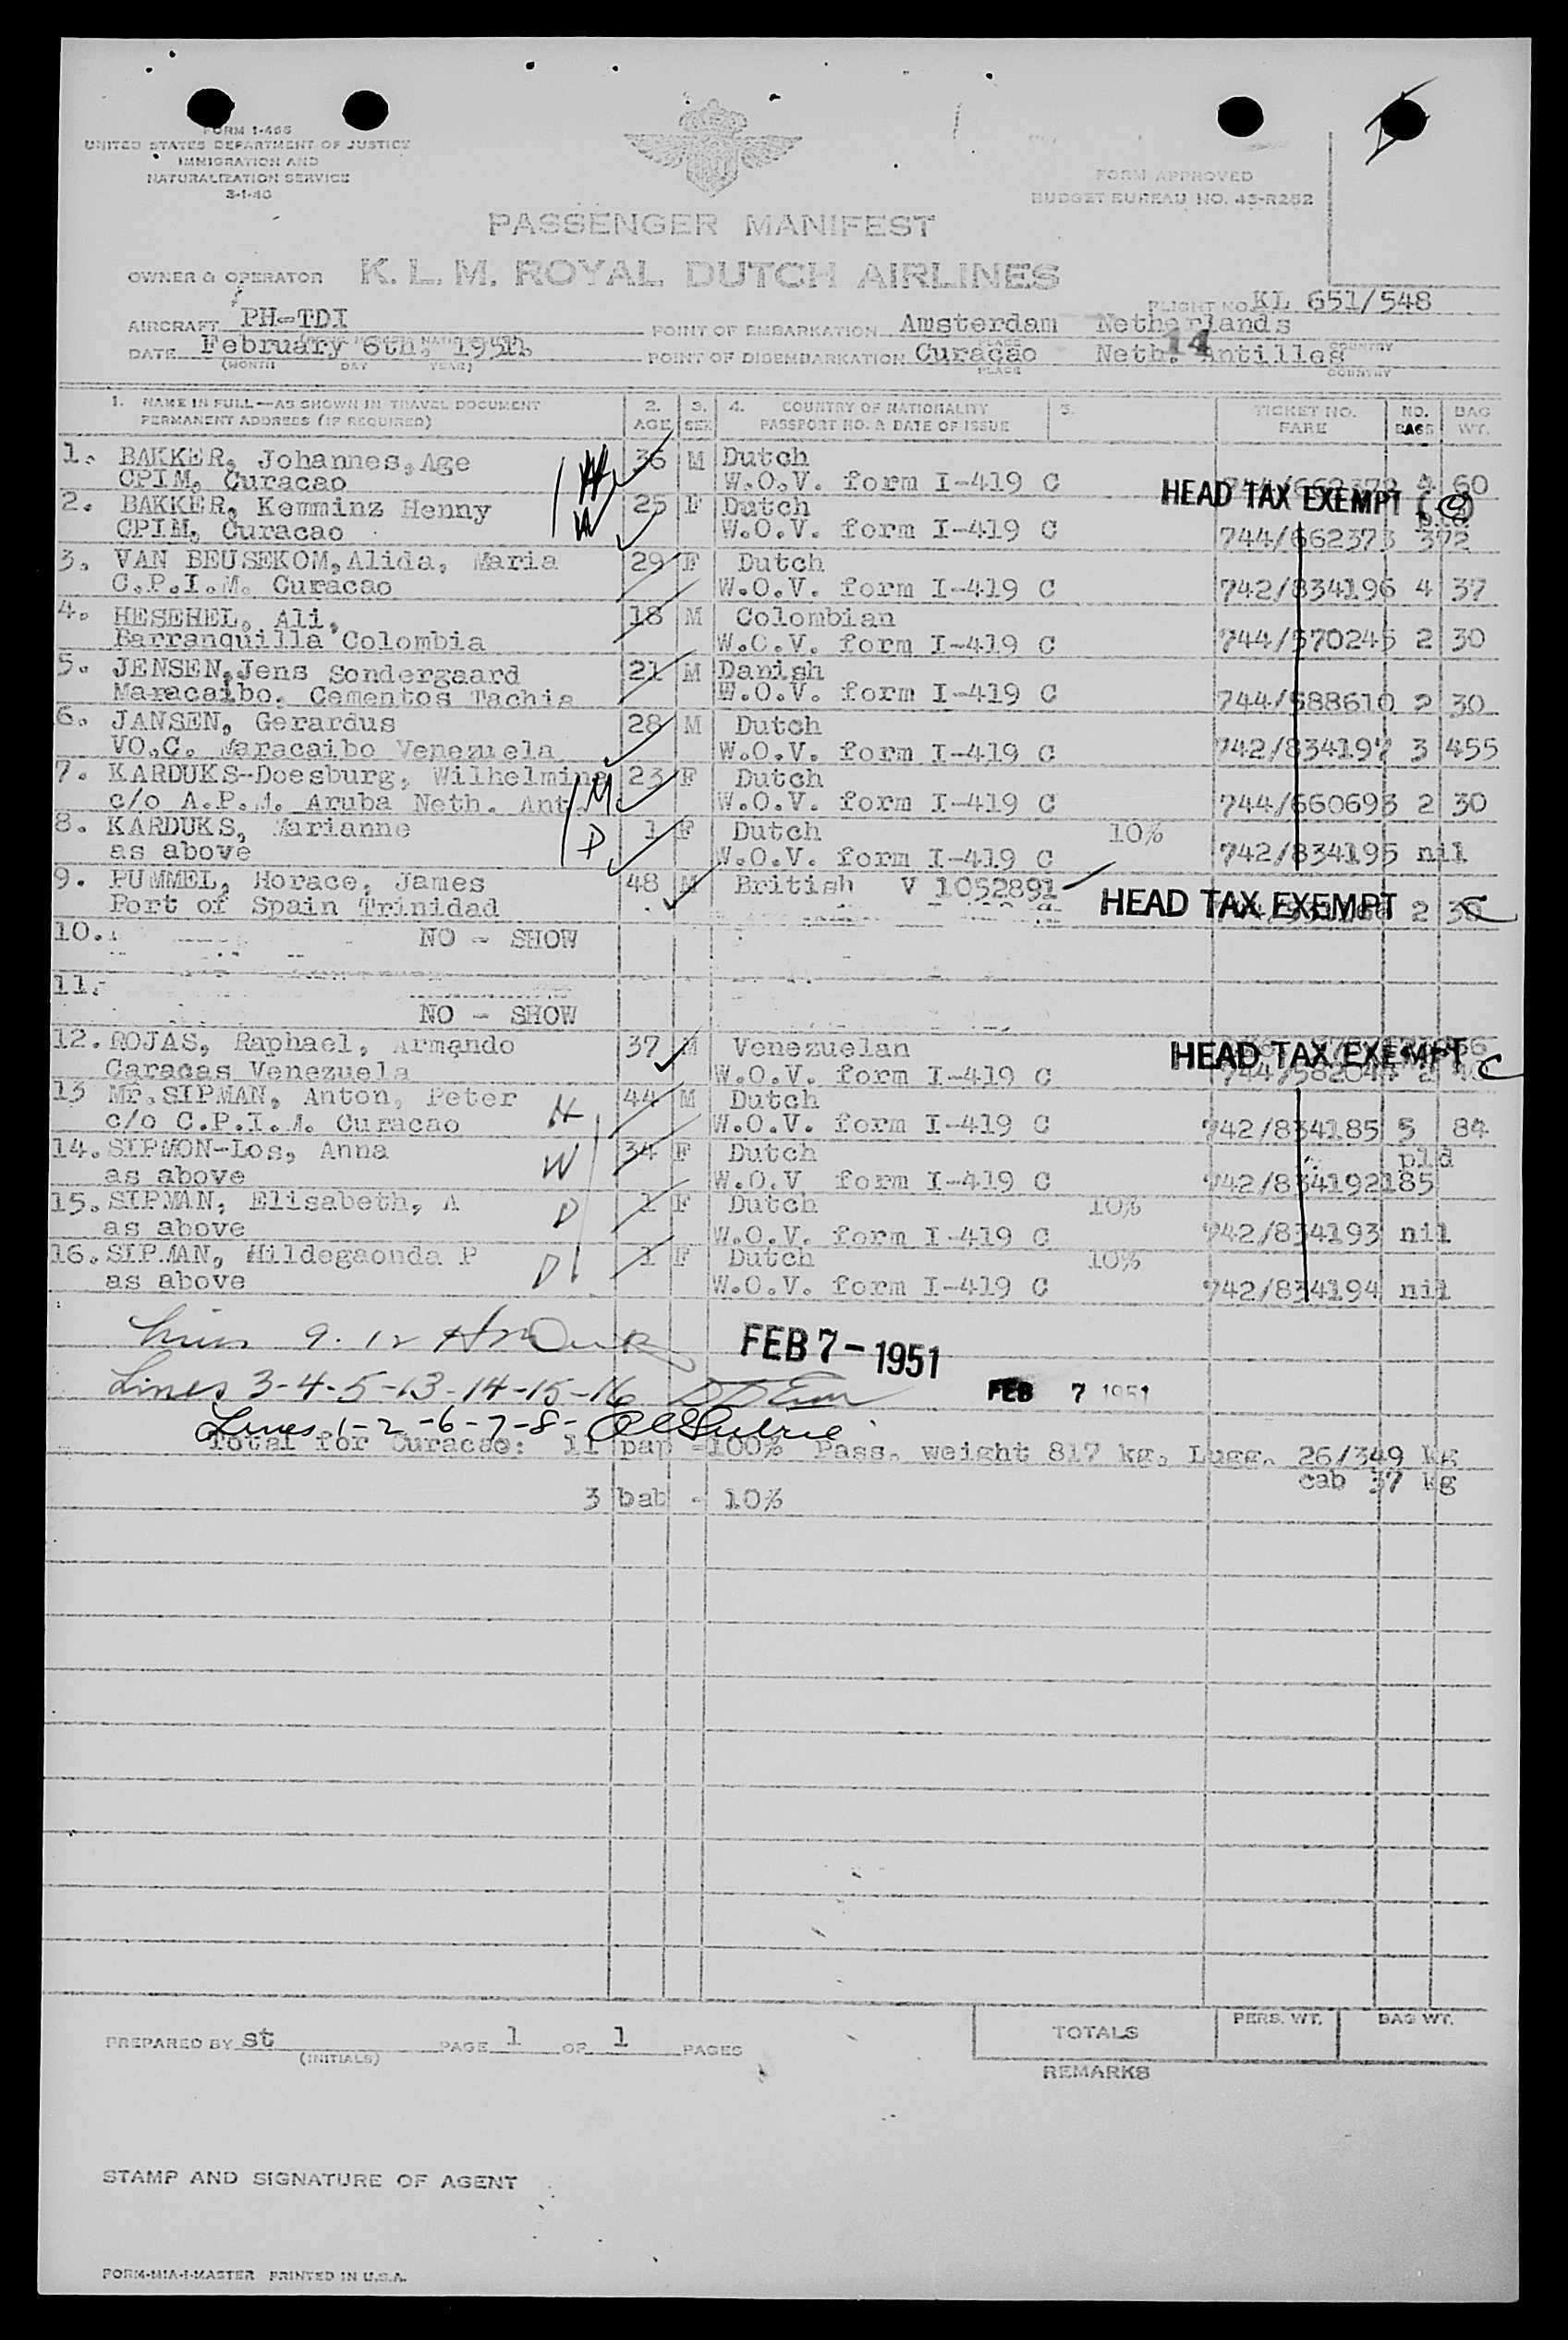 FORM I-466
UNITED STATES DEPARTMENT OF JUSTICE
IMMIGRATION AND
NATURALIZATION SERVICE
3-1-40
FORM APPROVED
BUDGET BUREAU NO. 43-R252
PASSENGER MANIFEST
OWNER & OPERATOR K. L. M. ROYAL DUTCH AIRLINES
FLIGHT NO. KL 651/548
AIRCRAFT PH-TDI POINT OF EMBARKATION Amsterdam Netherlands
DATE February 6th, 1951 POINT OF DISEMBARKATION Curacao Neth. Antilles
14
(MONTH DAY YEAR) PLACE COUNTRY
1. NAME IN FULL—AS SHOWN IN TRAVEL DOCUMENT 2. 3. 4. COUNTRY OF NATIONALITY 5. TICKET NO. NO. BAG
PERMANENT ADDRESS (IF REQUIRED) AGE SEX PASSPORT NO. & DATE OF ISSUE FARE BAGS WT.
1. BAKKER, Johannes, Age H 36 M Dutch
CPIM, Curacao W.O.V. form I-419 C 4 60
HEAD TAX EXEMPT C
2. BAKKER, Kemminz Henny W 25 F Dutch pld
CPIM, Curacao W.O.V. form I-419 C 744/662373 372
3. VAN BEUSEKOM, Alida, Maria 29 F Dutch
C.P.I.M. Curacao W.O.V. form I-419 C 742/834196 4 37
4. HESEHEL, Ali, 18 M Colombian
Barranquilla Colombia W.O.V. form I-419 C 744/570245 2 30
5. JENSEN, Jens Sondergaard 21 M Danish
Maracaibo, Cementos Tachia W.O.V. form I-419 C 744/588610 2 30
6. JANSEN, Gerardus 28 M Dutch
VO.C. Maracaibo Venezuela W.O.V. form I-419 C 742/834197 3 455
7. KARDUKS-Doesburg, Wilhelmina M 23 F Dutch
c/o A.P.M. Aruba Neth. Ant. W.O.V. form I-419 C 744/660693 2 30
8. KARDUKS, Marianne D 1 F Dutch 10%
as above W.O.V. form I-419 C 742/834195 nil
9. PUMMEL, Horace, James 48 M British V 1052891
Port of Spain Trinidad HEAD TAX EXEMPT 2 30 C
10. NO - SHOW
11.
NO - SHOW
12. ROJAS, Raphael, Armando 37 M Venezuelan HEAD TAX EXEMPT C
Caracas Venezuela W.O.V. form I-419 C 744/582044 2
13 Mr. SIPMAN, Anton, Peter H 44 M Dutch
c/o C.P.I.M. Curacao W.O.V. form I-419 C 742/834185 5 84
14. SIPMON-Los, Anna W 34 F Dutch pld
as above W.O.V form I-419 C 742/834192 185
15. SIPMAN, Elisabeth, A D 1 F Dutch 10%
as above W.O.V. form I-419 C 742/834193 nil
16. SIPMAN, Hildegaonda P D 1 F Dutch 10%
as above W.O.V. form I-419 C 742/834194 nil
Lines 9-12
FEB 7 - 1951
Lines 3-4-5-13-14-15-16
FEB 7 1951
Lines 1-2-6-7-8-
Total for Curacao: 11 pap =100% Pass. weight 817 kg. Lugg. 26/349 kg
cab 37 kg
3 bab - 10%
PREPARED BY st PAGE 1 OF 1 PAGES
(INITIALS)
TOTALS PERS. WT. BAG WT.
REMARKS
STAMP AND SIGNATURE OF AGENT
FORM-MIA-1-MASTER PRINTED IN U.S.A.